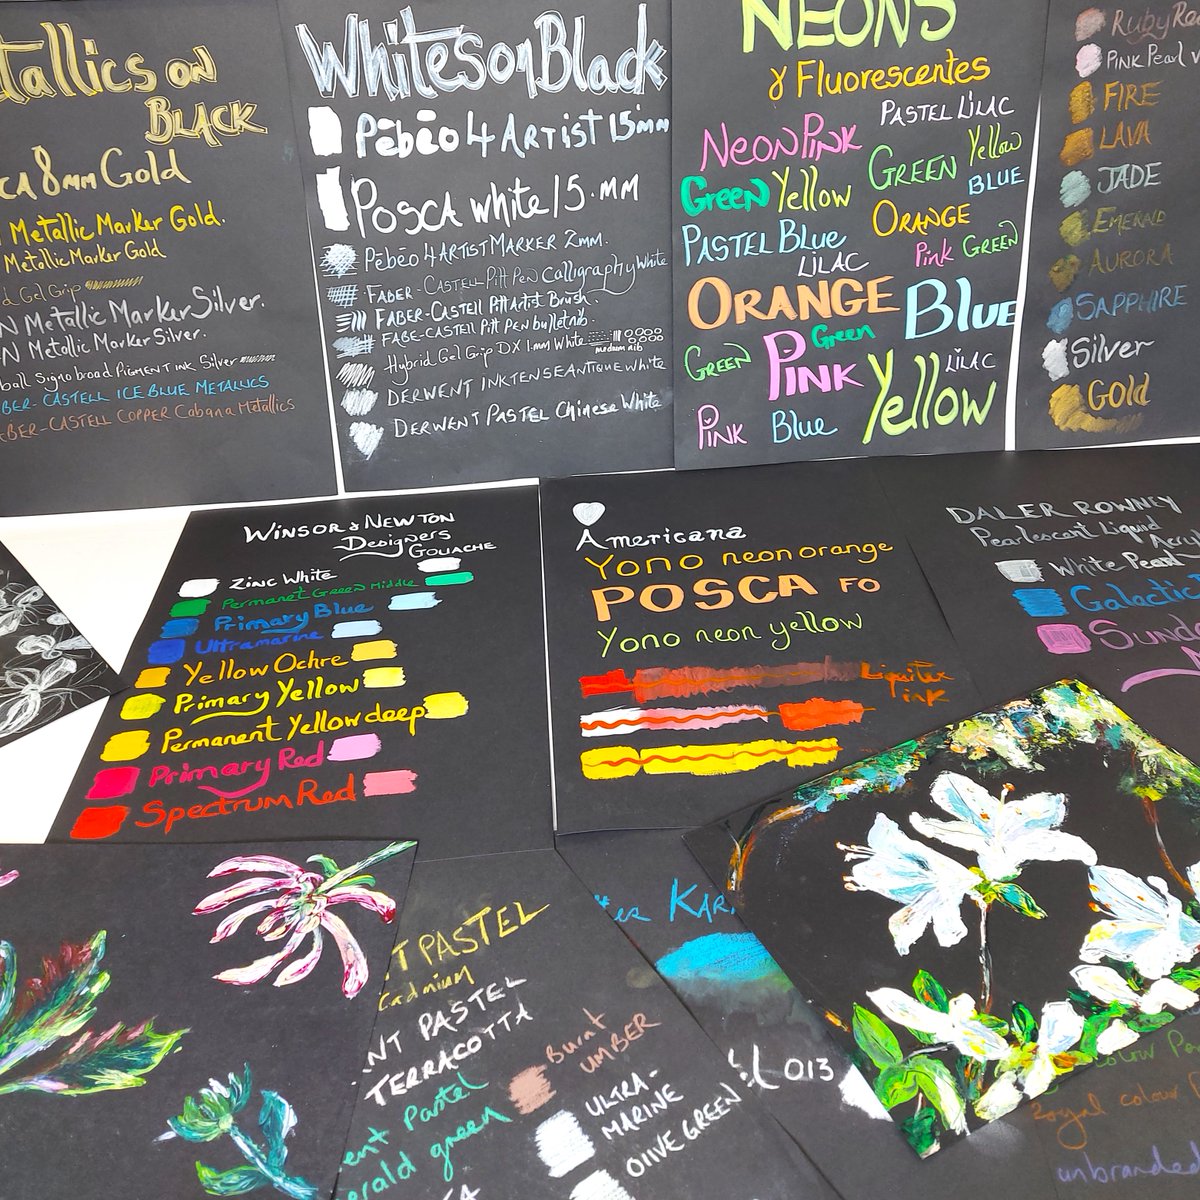 tallics on
BLACK
CA 8mm Gold
Metallic Marker Gold.
Metallic Marker Gold
d Gel Grip
N Metallic Marker Silver.
N Metallic Marker Silver.
ball Signo broad PIGMENT INK Silver
BER-CASTELL ICE BLUE METALLICS
BER-CASTELL COPPER Cabana Metallics
Whites on Black
Pēbēo 4 Artist 15mm
Posca white 15.mm
Pēbēo 4 ARTIST MARKER 2mm.
FABER-CASTELL Pitt Pen Calligraphy White
FABER-CASTELL Pitt Artist Brush.
FABE-CASTELL Pitt PEN bullet nib.
Hybrid Gel Grip DX 1.mm White
medium nib
DERWENT INKTENSE ANTIQUE White
DERWENT PASTEL Chinese White
NEONS
& Fluorescentes
PASTEL LILAC
NEON PINK
GREEN Yellow
Green Yellow
BLUE
ORANGE
PASTEL Blue
Pink GREEN
LILAC
ORANGE Blue
Green
GREEN PINK
LILAC
Yellow
PINK Blue
Ruby Re
PINK Pearl W
FIRE
LAVA
JADE
EMERALD
AURORA
SAPPHIRE
Silver
Gold
WINSOR & NEWTON
Designers
GOUACHE
ZINC WHITE
Permanet Green Middle
Primary Blue
Ultramarine
Yellow Ochre
Primary Yellow
Permanent Yellow deep
Primary Red
Spectrum Red
Americana
Yono neon orange
POSCA FO
Yono neon yellow
Liquitex
ink
DALER ROWNEY
Pearlescent Liquid
Acry
White Pearl
Galactic
Sunda
T PASTEL
Cadmium
NT PASTEL
TERRACOTTA
ent Pastel
erald green
Burnt
UMBER
ULTRA-
MARINE
OLIVE GREEN
ter KAR
013
colour Pe
Royal colour
unbranded